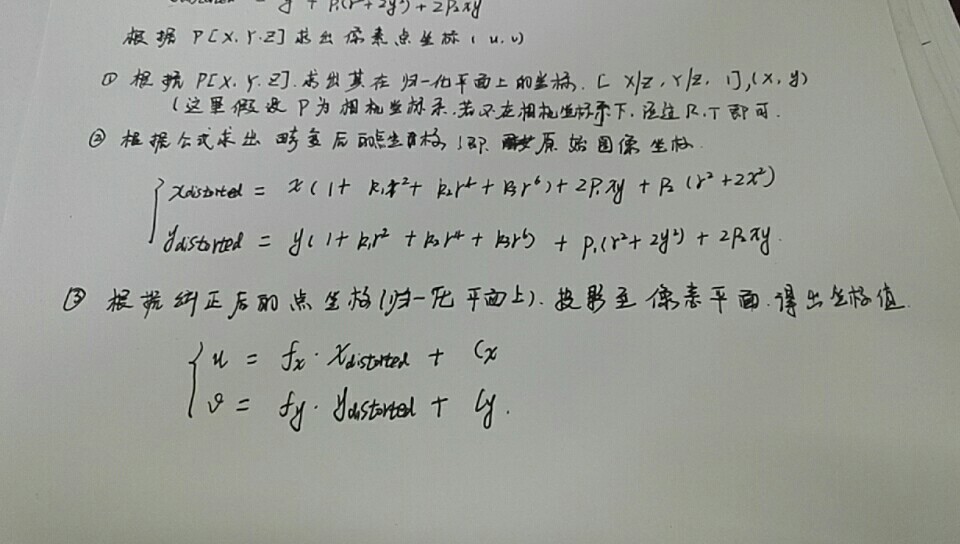 y + p₁(r²+2y²) + 2p₂xy
根据 P[X.Y.Z] 求出像素点坐标(u.v)
① 根据 P[X.Y.Z].求出其在归一化平面上的坐标.[X/Z,Y/Z,1],(x,y)
(这里假设P为相机坐标系.若不在相机坐标系下.通过R.T即可.
② 根据公式求出畸变后的点坐标,即原始图像坐标.
xdistorted = x(1+k₁r²+k₂r⁴+k₃r⁶)+2p₁xy+p₂(r²+2x²)
ydistorted = y(1+k₁r²+k₂r⁴+k₃r⁶)+p₁(r²+2y²)+2p₂xy.
③ 根据纠正后的点坐标(归一化平面上).投影至像素平面.得出坐标值.
u = fx·xdistorted + Cx
v = fy·ydistorted + Cy.